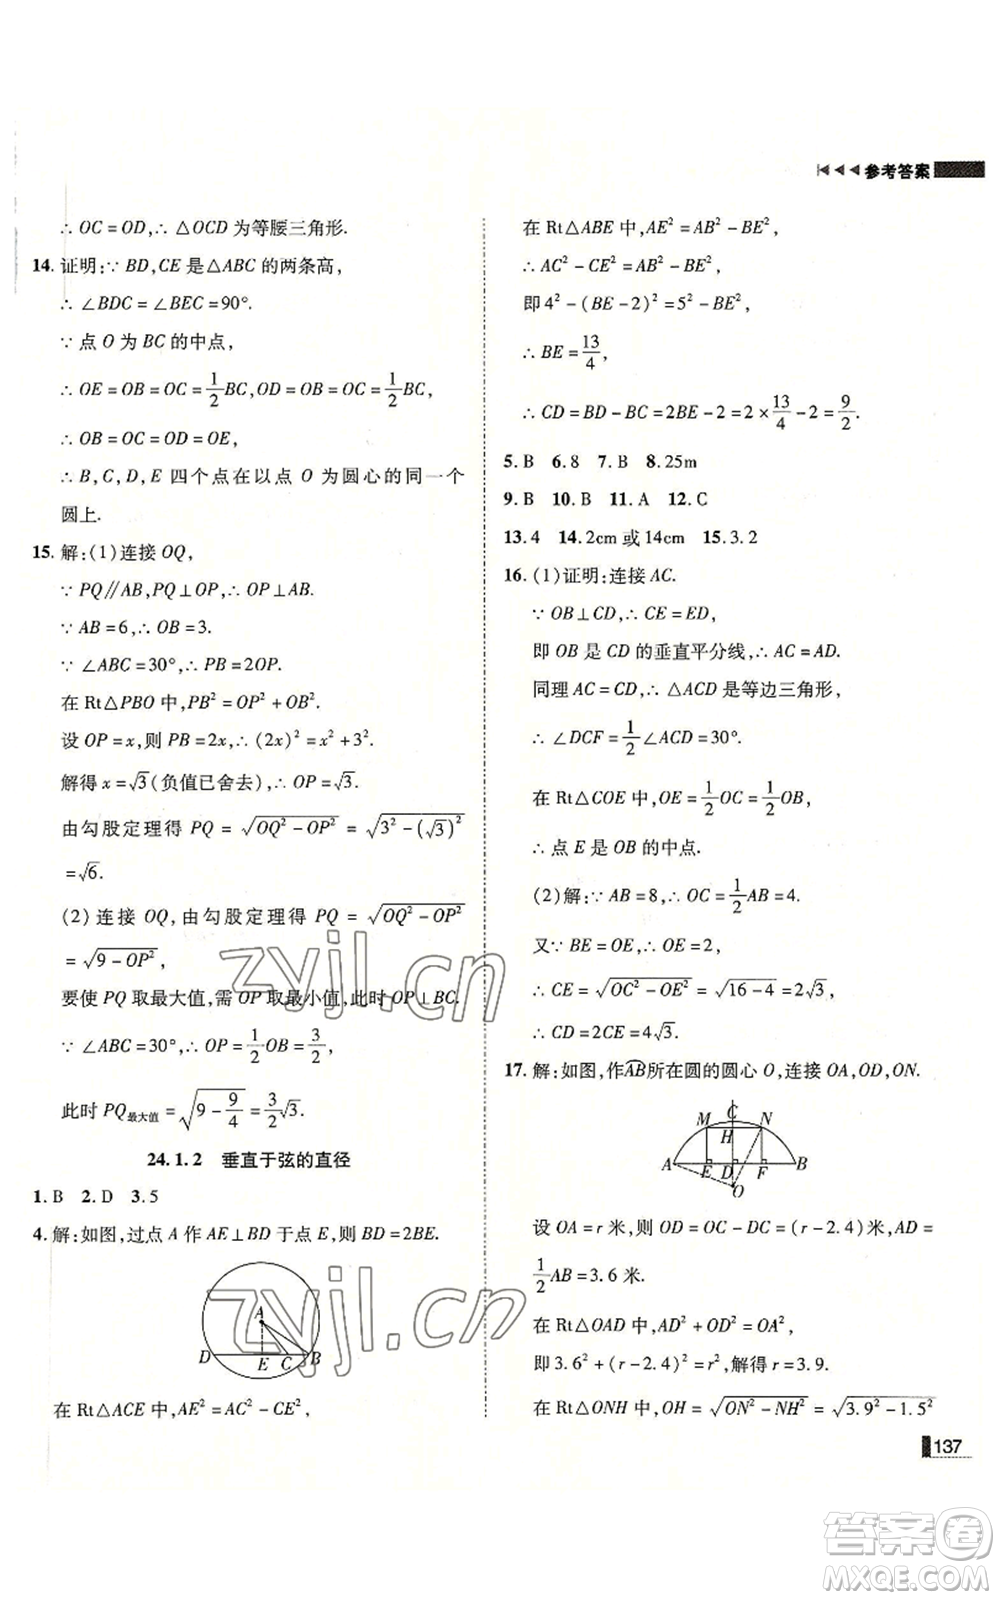 参考答案
∴ OC = OD, ∴ △OCD 为等腰三角形.
14. 证明: ∵ BD, CE 是 △ABC 的两条高,
∴ ∠BDC = ∠BEC = 90°.
∵ 点 O 为 BC 的中点,
∴ OE = OB = OC = 1/2 BC, OD = OB = OC = 1/2 BC,
∴ OB = OC = OD = OE,
∴ B, C, D, E 四个点在以点 O 为圆心的同一个
圆上.
15. 解: (1) 连接 OQ,
∵ PQ // AB, PQ ⊥ OP, ∴ OP ⊥ AB.
∵ AB = 6, ∴ OB = 3.
∵ ∠ABC = 30°, ∴ PB = 2OP.
在 Rt△PBO 中, PB² = OP² + OB².
设 OP = x, 则 PB = 2x, ∴ (2x)² = x² + 3².
解得 x = √3 (负值已舍去), ∴ OP = √3.
由勾股定理得 PQ = √(OQ² - OP²) = √(3² - (√3)²)
= √6.
(2) 连接 OQ, 由勾股定理得 PQ = √(OQ² - OP²)
= √(9 - OP²),
要使 PQ 取最大值, 需 OP 取最小值, 此时 OP ⊥ BC.
∵ ∠ABC = 30°, ∴ OP = 1/2 OB = 3/2,
此时 PQ最大值 = √(9 - 9/4) = 3/2 √3.
24.1.2 垂直于弦的直径
1. B 2. D 3. 5
4. 解: 如图, 过点 A 作 AE ⊥ BD 于点 E, 则 BD = 2BE.
A
D E C B
在 Rt△ACE 中, AE² = AC² - CE²,
在 Rt△ABE 中, AE² = AB² - BE²,
∴ AC² - CE² = AB² - BE²,
即 4² - (BE - 2)² = 5² - BE²,
∴ BE = 13/4,
∴ CD = BD - BC = 2BE - 2 = 2 × 13/4 - 2 = 9/2.
5. B 6. 8 7. B 8. 25m
9. B 10. B 11. A 12. C
13. 4 14. 2cm 或 14cm 15. 3.2
16. (1) 证明: 连接 AC.
∵ OB ⊥ CD, ∴ CE = ED,
即 OB 是 CD 的垂直平分线, ∴ AC = AD.
同理 AC = CD, ∴ △ACD 是等边三角形,
∴ ∠DCF = 1/2 ∠ACD = 30°.
在 Rt△COE 中, OE = 1/2 OC = 1/2 OB,
∴ 点 E 是 OB 的中点.
(2) 解: ∵ AB = 8, ∴ OC = 1/2 AB = 4.
又 ∵ BE = OE, ∴ OE = 2,
∴ CE = √(OC² - OE²) = √(16 - 4) = 2√3,
∴ CD = 2CE = 4√3.
17. 解: 如图, 作 A͡B 所在圆的圆心 O, 连接 OA, OD, ON.
M C N
H
A E D F B
O
设 OA = r 米, 则 OD = OC - DC = (r - 2.4) 米, AD =
1/2 AB = 3.6 米.
在 Rt△OAD 中, AD² + OD² = OA²,
即 3.6² + (r - 2.4)² = r², 解得 r = 3.9.
在 Rt△ONH 中, OH = √(ON² - NH²) = √(3.9² - 1.5²)
137
zyjl.cn
zyjl.cn
答案卷
MXQE.COM